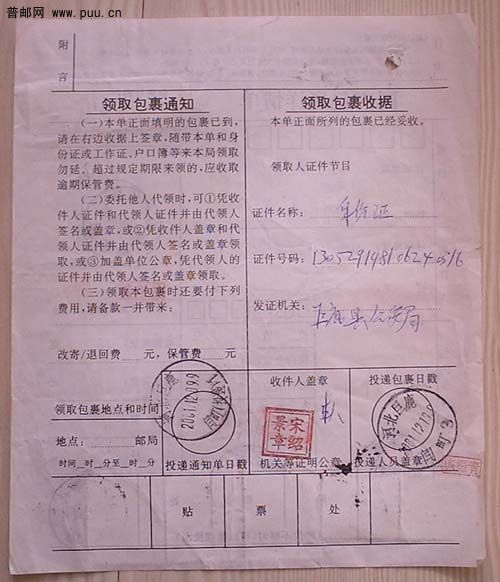 普邮网 www.puu.cn
附
言
领取包裹通知
(一)本单正面填明的包裹已到,
请在右边收据上签章,随带本单和身
份证或工作证、户口簿等来本局领取
勿延。超过规定期限来领的,应收取
逾期保管费。
(二)委托他人代领时,可①凭收
件人证件和代领人证件并由代领人
签名或盖章,或②凭收件人盖章和代
领人证件并由代领人签名或盖章领
取,或③加盖单位公章,凭代领人的
证件并由代领人签名或盖章领取。
(三)领取本包裹时还要付下列
费用,请备款一并带来:
改寄/退回费 元,保管费 元。
领取包裹收据
本单正面所列的包裹已经妥收。
领取人证件节目
证件名称: 身份证
证件号码:
发证机关: 巨鹿县公安局
领取包裹地点和时间
地点: 邮局
时间__时__分至__时__分
投递通知单日戳
收件人盖章
宋绍
景章
机关等证明公章
投递包裹日戳
河北巨鹿
2001.12.
投递人员盖章
贴 票 处